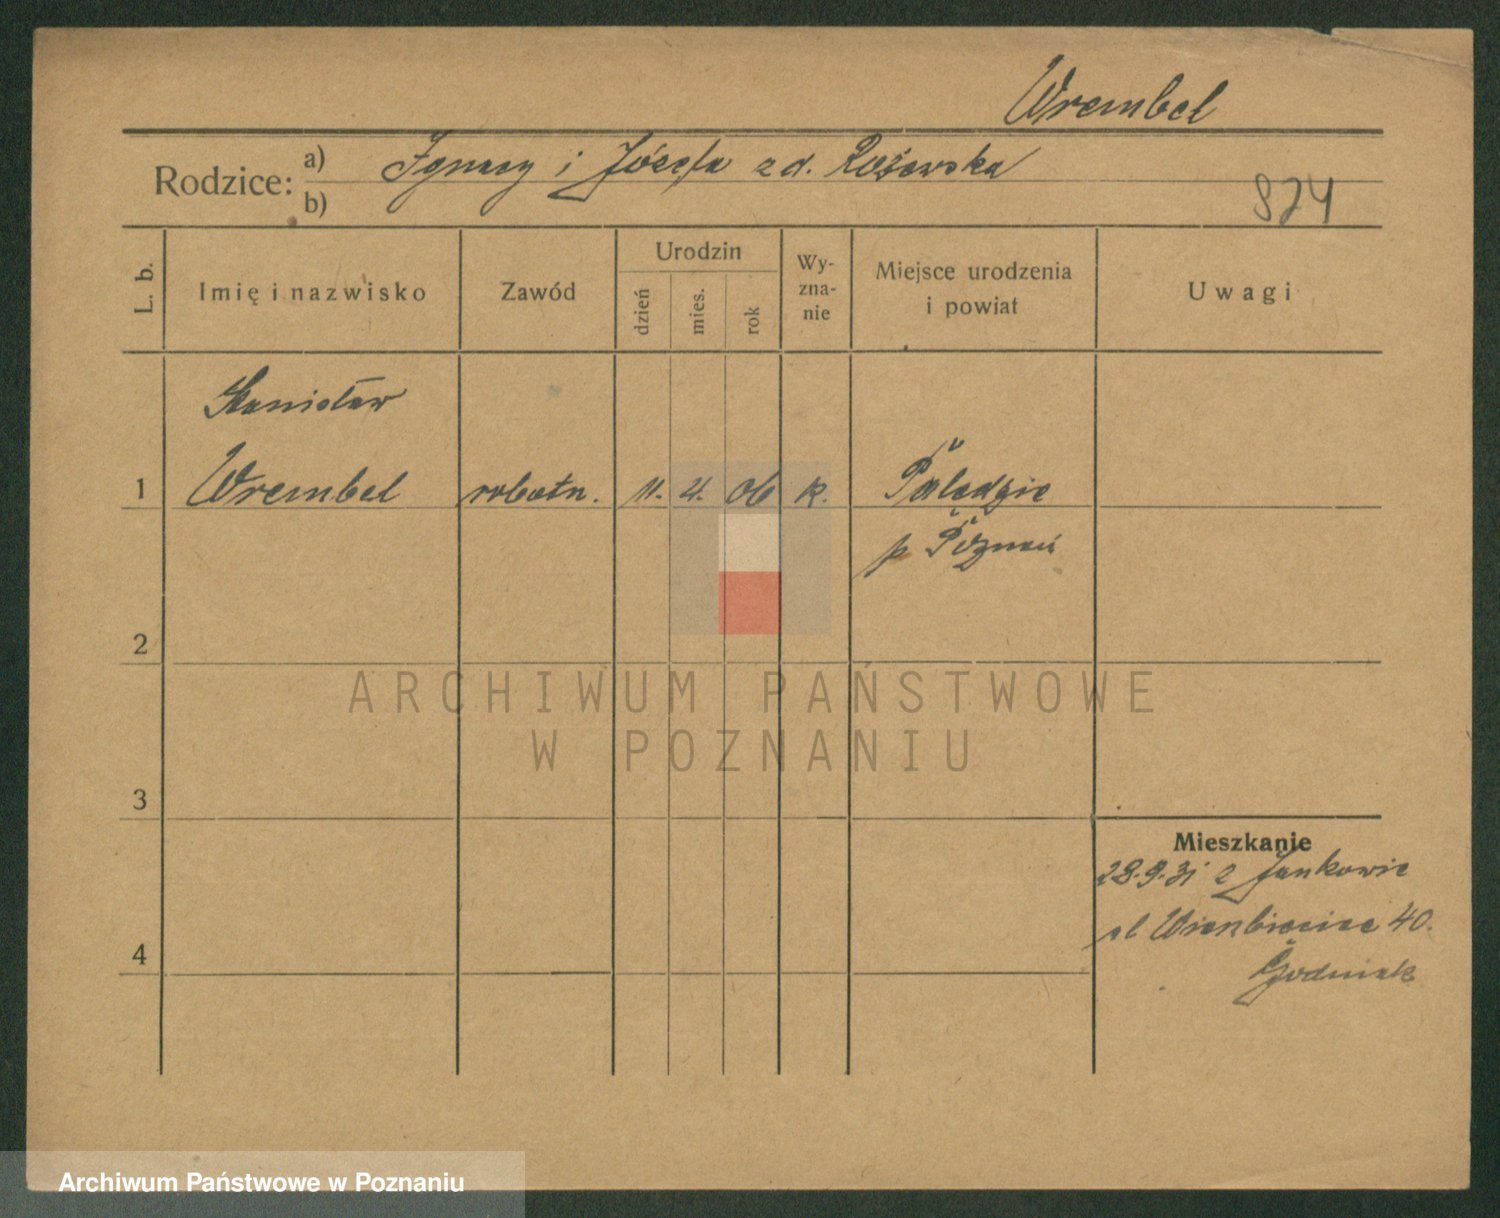 Wrembel
Rodzice: a) Ignacy i Józefa z d. Rożewska
b)
874
L. b.
Imię i nazwisko
Zawód
Urodzin
dzień
mies.
rok
Wy-
zna-
nie
Miejsce urodzenia
i powiat
Uwagi
Stanisław
1 Wrembel robotn. 11. 4. 06 k. Palędzie
p Poznań
2
ARCHIWUM PAŃSTWOWE
W POZNANIU
3
Mieszkanie
28.9.31 z Jankowic
ul 40.
4
Archiwum Państwowe w Poznaniu